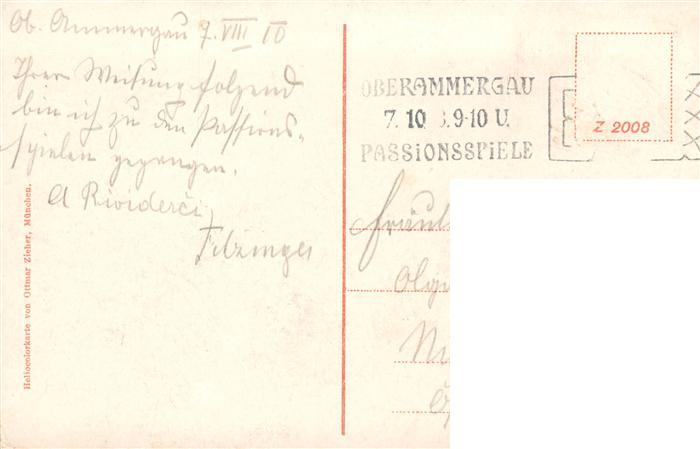 Ob. Ammergau 7. VIII 10
Ihrer Weisung folgend
bin ich zu den Passions-
spielen gegangen.
A Rividerci
Filzinger
Heliocolorkarte von Ottmar Zieher, München.
OBERAMMERGAU
7. 10 8.9-10 U.
PASSIONSSPIELE
Z 2008
Fräul
Olga